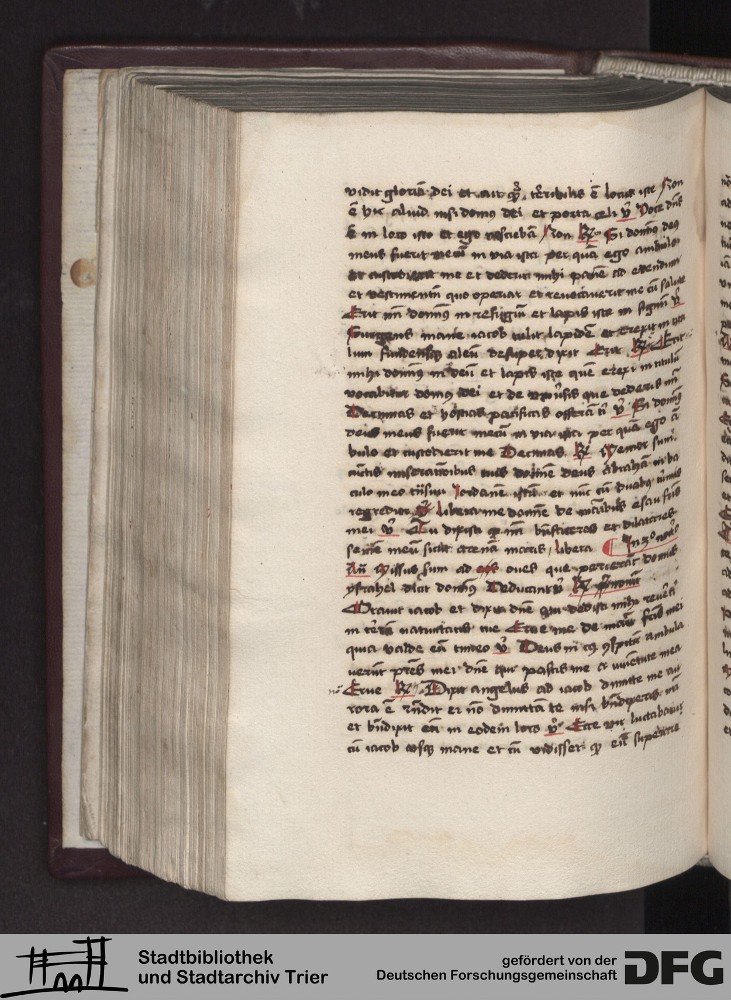 vidit gloriā dei et ait q̄ t̄ribilis ē locus iste Non
ē hic aliud nisi domus dei et porta celi v̄ Vere dn̄s
ē in loco isto et ego nesciebā Non R̄ Si domin9 deus
meus fuerit mecū in via ista per quā ego ambulo
et custodierit me et dederit mihi panē ad edendum
et vestimentū quo operiar et revocaverit me cū salute
Erit m̄ domin9 in refugiū et lapis iste in signū v̄
Surgens mane iacob tulit lapidē et erexit in titu
lum fundensq3 oleū desuper dixit Erit R̄ Erit
mihi domin9 in deū et lapis iste quē erexi in titulū
vocabitur domus dei et de que dederis m̄
Decimas et hostias pacificas offerā t̄ v̄ Si domin9
deus meus fuerit mecū in via ista per quā ego ā
bulo et custodierit me Decimas R̄ Memor sum
domine deus abrahā in ba
culo meo trāsivi Iordanē istū et nūc cū duabus turmis
regredior v̄ libera me domine de manibus esau frīs
mei v̄ Tu dixisti q̄ m̄ bn̄faceres et dilatares
semē meū sicut arenā maris libera In 3o noct9
An̄ Missus sum ad oves que perierāt domus
ysrahel dicit domin9 Deducant v̄ R̄
Oravit iacob et dixit dn̄e qui dixisti mihi rev̄te
in t̄rā nativitatis tue Erue me de manu frīs mei
quia valde eū timeo v̄ Deus in cuius ambula
verūt p̄res mei dn̄e qui pascis me a iuventute mea
Erue R̄ Dixit angelus ad iacob dimitte me au
rora ē rn̄dit ei nō dimittā te nisi bn̄dixeris m̄
et bn̄dixit eū in eodem loco v̄ Ecce vir luctabatur
cū iacob usq3 mane et cū vidisset q̄ eū superare
Stadtbibliothek
und Stadtarchiv Trier
gefördert von der
Deutschen Forschungsgemeinschaft
DFG